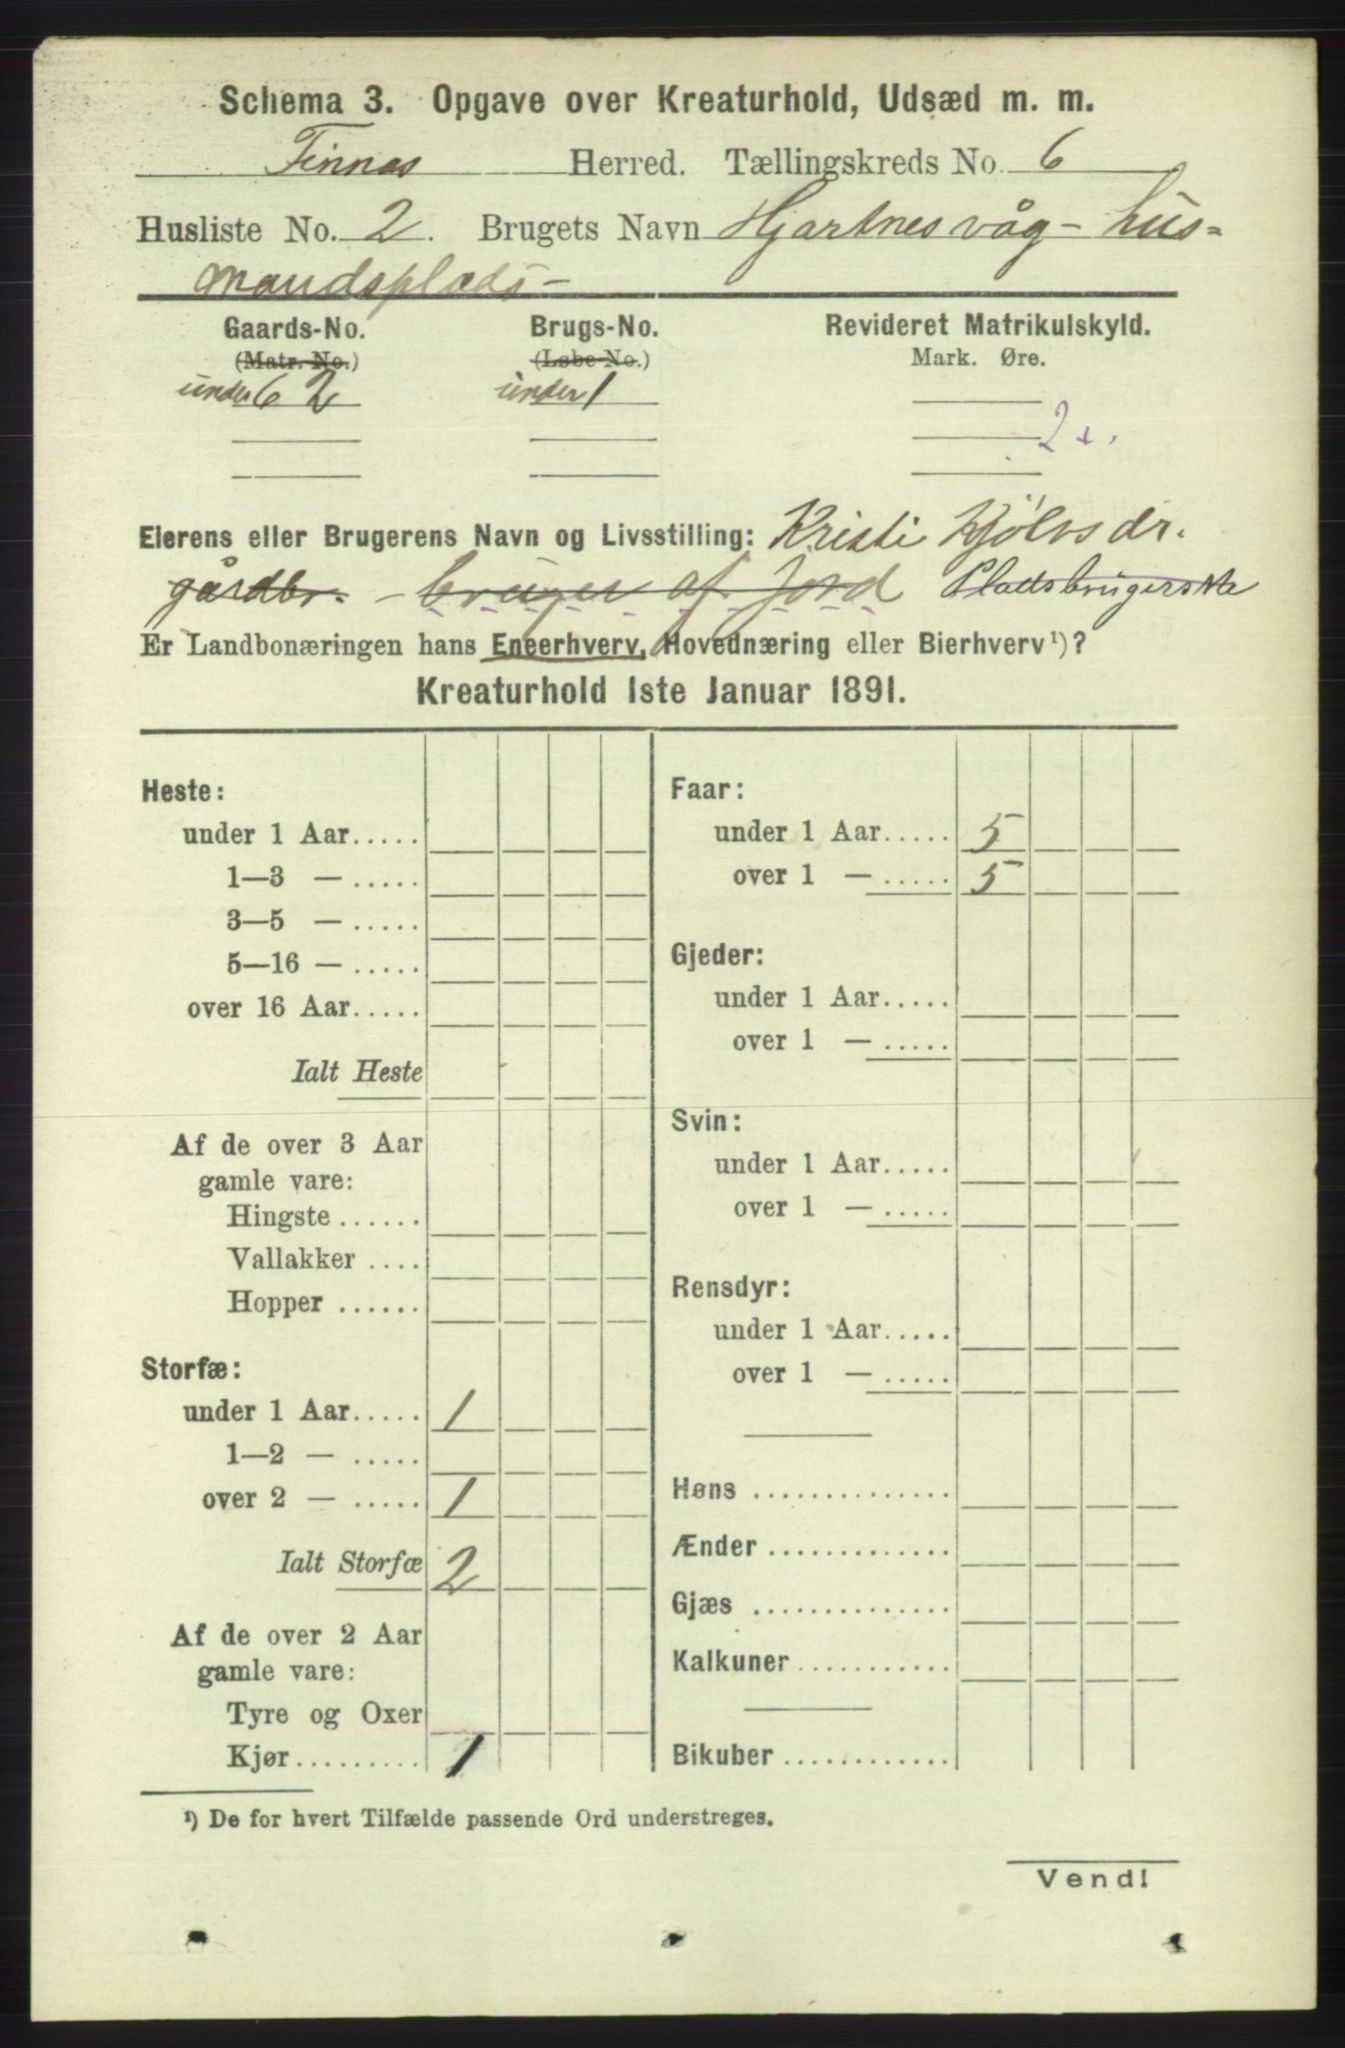 Schema 3. Opgave over Kreaturhold, Udsæd m. m.
Finnas Herred. Tællingskreds No. 6
Husliste No. 2. Brugets Navn Hjartnesvåg - hus-
mandsplads -
Gaards-No. Brugs-No. Revideret Matrikulskyld.
(Matr. No.) (Løbe No.) Mark. Øre.
under 62 under 1
2
Eierens eller Brugerens Navn og Livsstilling: Kristi Kjølvsdr.
gårdbr. - bruger af Jord Pladsbrugerske
Er Landbonæringen hans Eneerhverv, Hovednæring eller Bierhverv¹)?
Kreaturhold 1ste Januar 1891.
Heste:
under 1 Aar.....
1—3 — .....
3—5 — .....
5—16 — .....
over 16 Aar.....
Ialt Heste
Af de over 3 Aar
gamle vare:
Hingste ......
Vallakker ....
Hopper ......
Storfæ:
under 1 Aar..... 1
1—2 — .....
over 2 — ..... 1
Ialt Storfæ 2
Af de over 2 Aar
gamle vare:
Tyre og Oxer
Kjør......... 1
Faar:
under 1 Aar..... 5
over 1 — ..... 5
Gjeder:
under 1 Aar.....
over 1 — .....
Svin:
under 1 Aar.....
over 1 — .....
Rensdyr:
under 1 Aar.....
over 1 — .....
Høns ..............
Ænder .............
Gjæs ..............
Kalkuner...........
Bikuber ............
¹) De for hvert Tilfælde passende Ord understreges.
Vend!